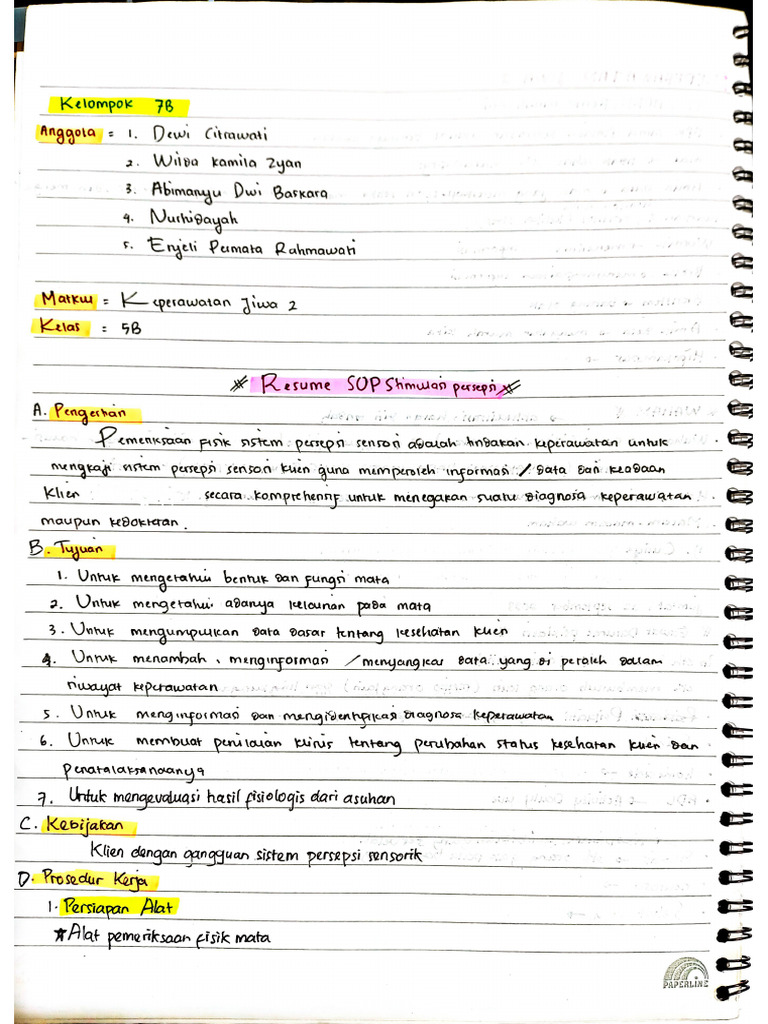 Kelompok 7B
Anggota = 1. Dewi Citrawati
2. Wilda Kamila Zyan
3. Abimanyu Dwi Baskara
4. Nurhidayah
5. Enjeli Permata Rahmawati
Matkul = Keperawatan Jiwa 2
Kelas = 5B
* Resume SOP Stimulasi persepsi *
A. Pengertian
Pemeriksaan fisik sistem persepsi sensori adalah tindakan keperawatan untuk
mengkaji sistem persepsi sensori klien guna memperoleh informasi / data dari keadaan
Klien secara komprehensif untuk menegakan suatu diagnosa keperawatan
maupun kedokteran.
B. Tujuan
1. Untuk mengetahui bentuk dan fungsi mata
2. Untuk mengetahui adanya kelainan pada mata
3. Untuk mengumpulkan data dasar tentang kesehatan klien
4. Untuk menambah, menginformasi / menyangkal data yang di peroleh dalam
riwayat keperawatan
5. Untuk menginformasi dan mengidentifikasi diagnosa keperawatan
6. Untuk membuat penilaian klinis tentang perubahan status kesehatan klien dan
penatalaksanaanya
7. Untuk mengevaluasi hasil fisiologis dari asuhan
C. Kebijakan
Klien dengan gangguan sistem persepsi sensorik
D. Prosedur Kerja
1. Persiapan Alat
* Alat pemeriksaan fisik mata
PAPERLINE